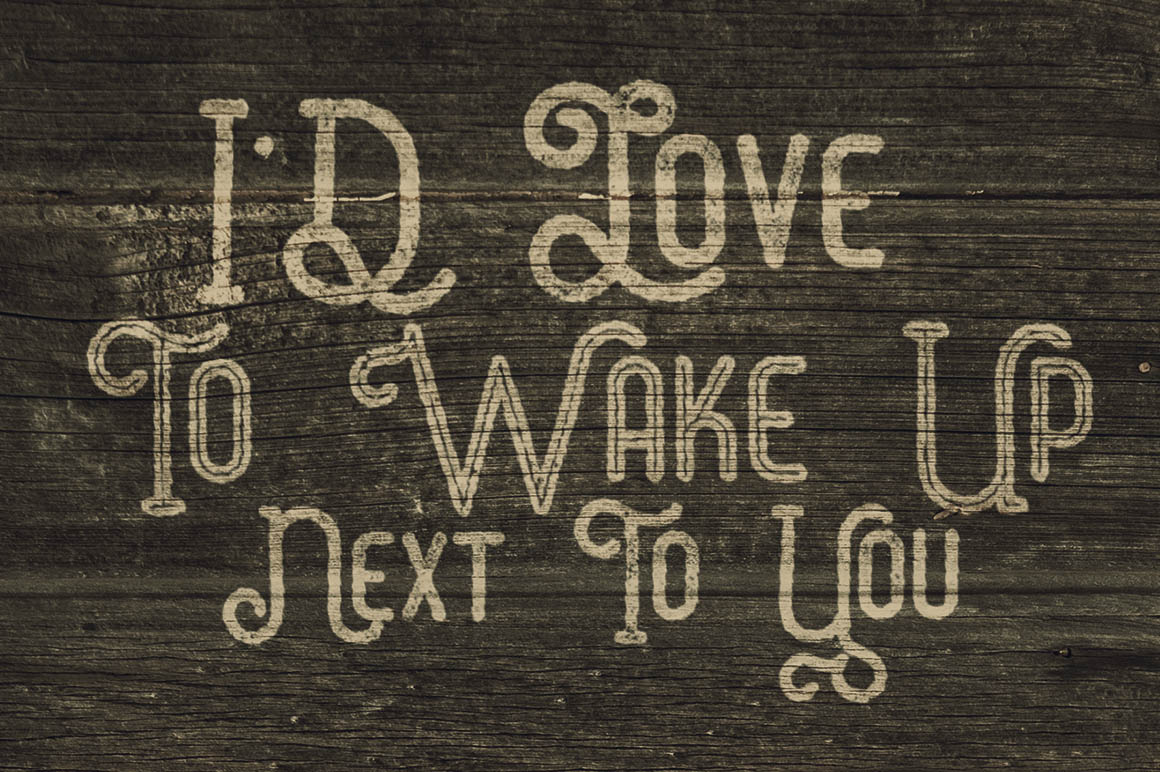 I'D Love
To Wake Up
Next To You